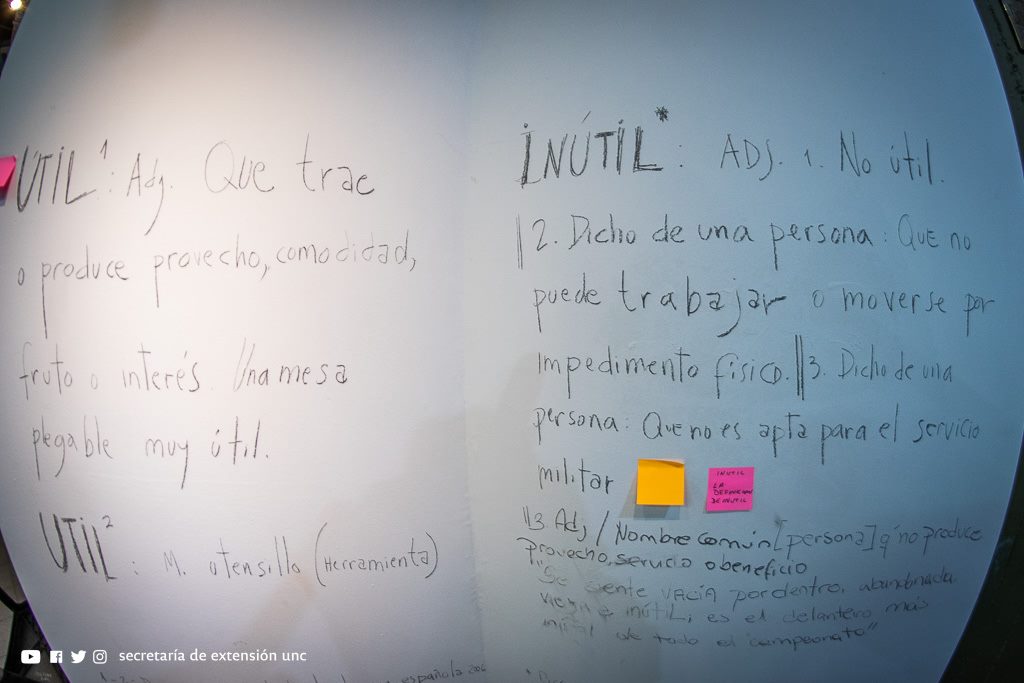 ÚTIL¹: Adj. Que trae
o produce provecho, comodidad,
fruto o interés. Una mesa
plegable muy útil.
UTIL²: M. utensilio (Herramienta)
INÚTIL*: ADJ. 1. No útil.
||2. Dicho de una persona: Que no
puede trabajar o moverse por
impedimento físico.||3. Dicho de una
persona: Que no es apta para el servicio
militar
INUTIL
LA
DEFINICION
DE INUTIL
||3. Adj/Nombre común [persona] q' no produce
provecho, servicio o beneficio
"Se siente vacía por dentro, abandonada
vieja e inútil, es el delantero más
inútil de todo el campeonato"
española
secretaría de extensión unc